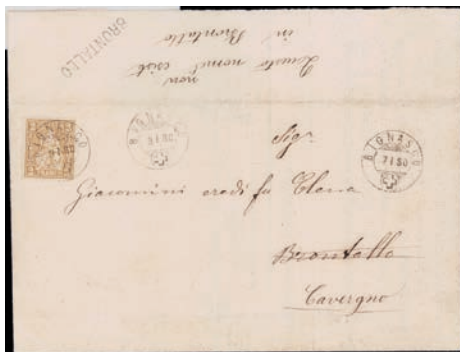 BRONTALLO
Questo nome non esiste
in Brontallo
BIGNASCO
9 I 80
BIGNASCO
7 I 80
Sigr.
Giacomini eredi fu Elena
Brontallo
Cavergno